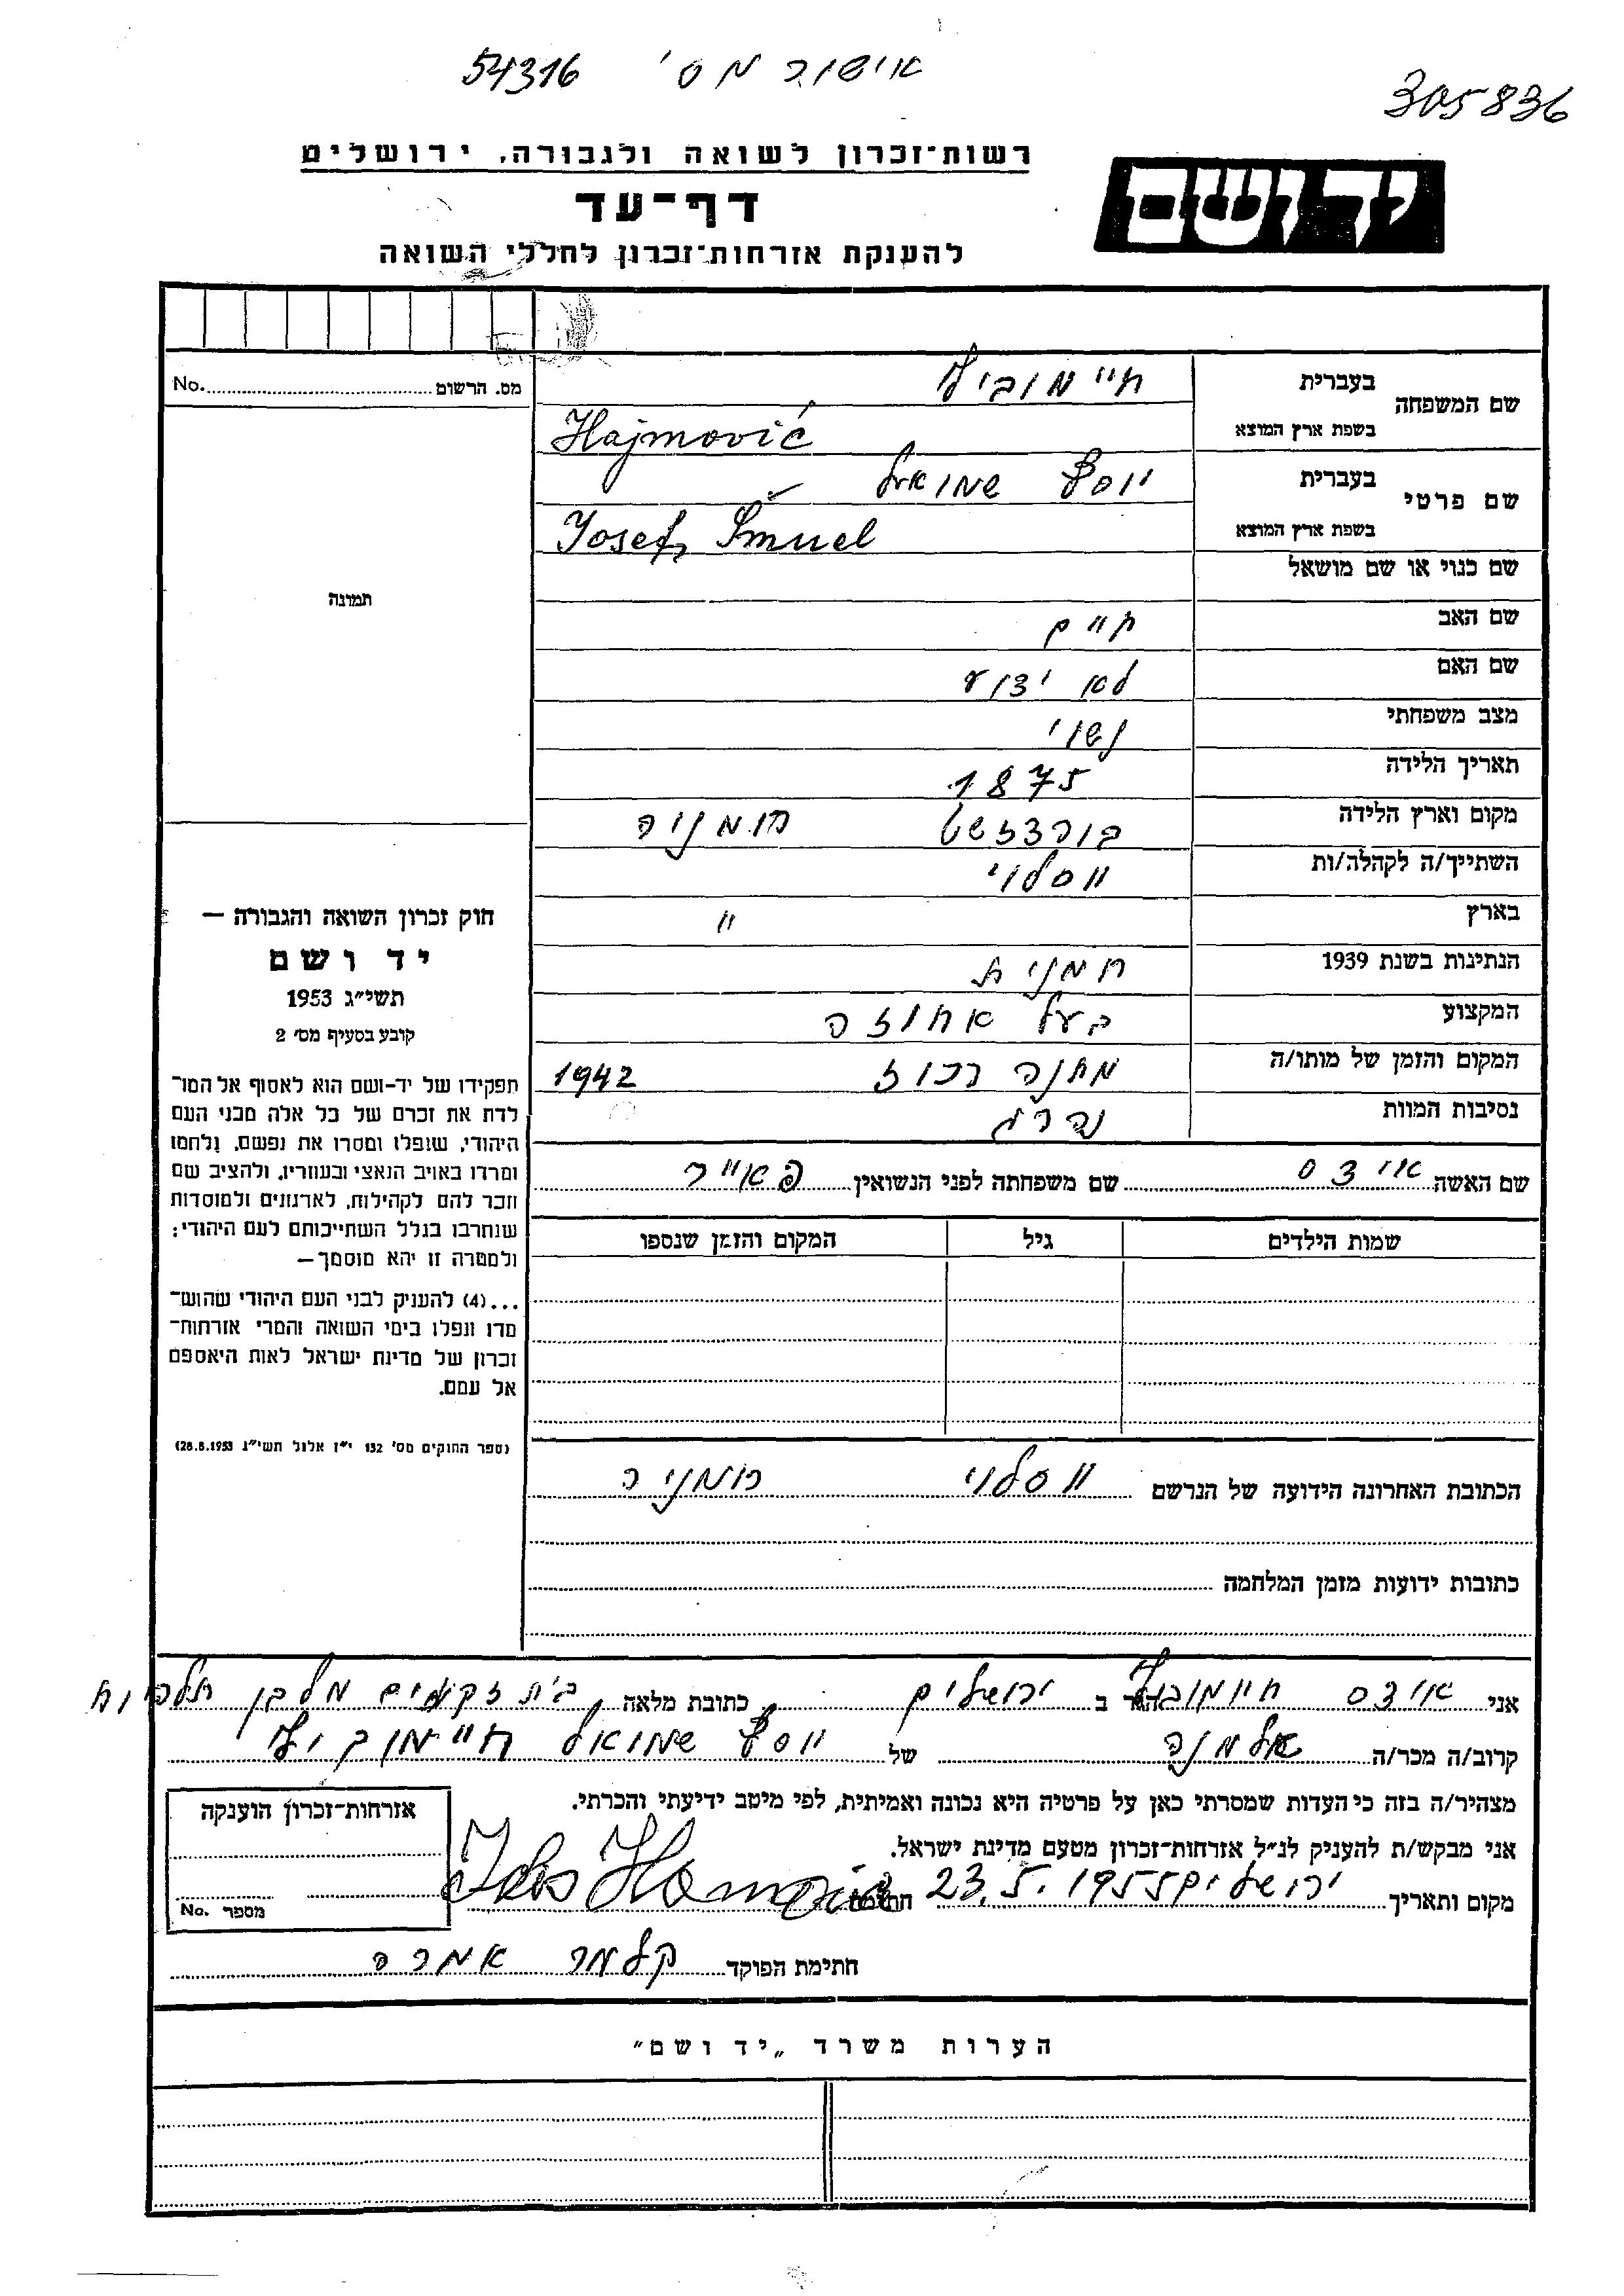 אישור מס' 54316
305836
רשות־זכרון לשואה ולגבורה, ירושלים
דף־עד
להענקת אזרחות־זכרון לחללי השואה
יד ושם
מס. הרשום No.
תמונה
שם המשפחה
בעברית חיימוביץ
בשפת ארץ המוצא Hajmović
שם פרטי
בעברית יוסף שמואל
בשפת ארץ המוצא Josef, Šmuel
שם כנוי או שם מושאל
שם האב חיים
שם האם לא ידוע
מצב משפחתי נשוי
תאריך הלידה 1875
מקום וארץ הלידה רומניה
השתייך/ה לקהלה/ות ווסלוי
בארץ "
הנתינות בשנת 1939 רמנית
המקצוע בעל אחוזה
המקום והזמן של מותו/ה מחנה רכוז 1942
נסיבות המוות נהרג
שם האשה אידס שם משפחתה לפני הנשואין פאייר
שמות הילדים גיל המקום והזמן שנספו
הכתובת האחרונה הידועה של הנרשם ווסלוי רומניה
כתובות ידועות מזמן המלחמה
חוק זכרון השואה והגבורה —
יד ושם
תשי״ג 1953
קובע בסעיף מס׳ 2
תפקידו של יד-ושם הוא לאסוף אל המו־
לדת את זכרם של כל אלה מבני העם
היהודי, שנפלו ומסרו את נפשם, נלחמו
ומרדו באויב הנאצי ובעוזריו, ולהציב שם
וזכר להם לקהילות, לארגונים ולמוסדות
שנחרבו בגלל השתייכותם לעם היהודי;
ולמטרה זו יהא מוסמך—
...(4) להעניק לבני העם היהודי שהוש־
מדו ונפלו בימי השואה והמרי אזרחות־
זכרון של מדינת ישראל לאות היאספם
אל עמם.
(ספר החוקים מס׳ 132 י״ז אלול תשי״ג 28.8.1953)
אני אידס חיימוביץ הגר ב ירושלים כתובת מלאה בית זקנים מלבן תלפיות
קרוב/ה מכר/ה אלמנה של יוסף שמואל חיימוביץ
מצהיר/ה בזה כי העדות שמסרתי כאן על פרטיה היא נכונה ואמיתית, לפי מיטב ידיעתי והכרתי.
אני מבקש/ת להעניק לנ״ל אזרחות־זכרון מטעם מדינת ישראל.
מקום ותאריך ירושלים 23.5.1955 חתימה
חתימת הפוקד קלמר
אזרחות־זכרון הוענקה
מספר No.
הערות משרד „יד ושם"